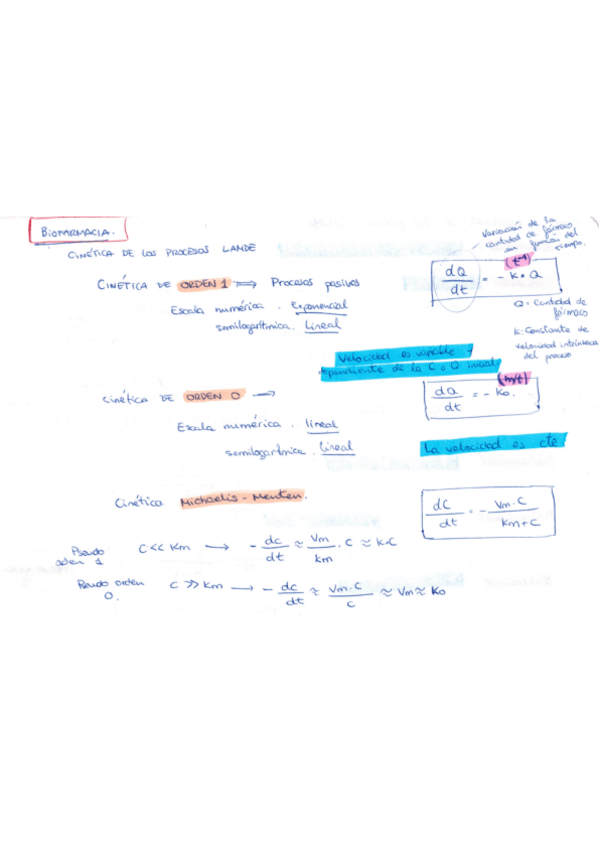 BIOFARMACIA.
CINÉTICA DE LOS PROCESOS LANDE
Variación de la
cantidad de fármaco
en función del
tiempo.
CINÉTICA DE ORDEN 1 ⟹ Procesos pasivos
(t⁻¹)
dQ/dt = - K · Q
Escala numérica . Exponencial
semilogarítmica . Lineal
Q = Cantidad de
fármaco
K: Constante de
velocidad intrínseca
del proceso
Velocidad es variable
dependiente de la C o Q inicial
CINÉTICA DE ORDEN 0 →
(m/t)
dQ/dt = - K₀.
Escala numérica . lineal
semilogarítmica . Lineal
La velocidad es cte.
Cinética Michaelis - Menten.
dC/dt = - Vm · C / Km + C
Pseudo
orden 1
C << Km → - dC/dt ≈ Vm/Km . C ≈ K·C
Pseudo orden
0.
C >> Km → - dC/dt ≈ Vm·C/C ≈ Vm ≈ K₀